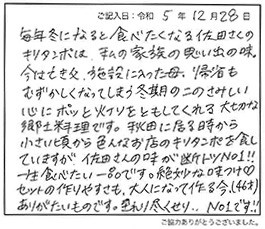 ご記入日：令和 5年 12月 28日
毎年冬になると食べたくなる佐田さんの
キリタンポは、私の家族の思い出の味。
今は亡き父、施設に入った母、帰省も
むずかしくなってしまう冬期のこのさみしい
心にポッと火イをともしてくれる大切な
郷土料理です。秋田に居る時から
小さい頃から色んなお店のキリタンポを食し
ていますが佐田さんの味が断トツNo1!!
一生食べたい一品です。絶妙な味つけ♡
セットの作りやすさも、大人になって作る今、(46才)
ありがたいものです。売れり尽くせり.. No1です!!
ご協力ありがとうございました。